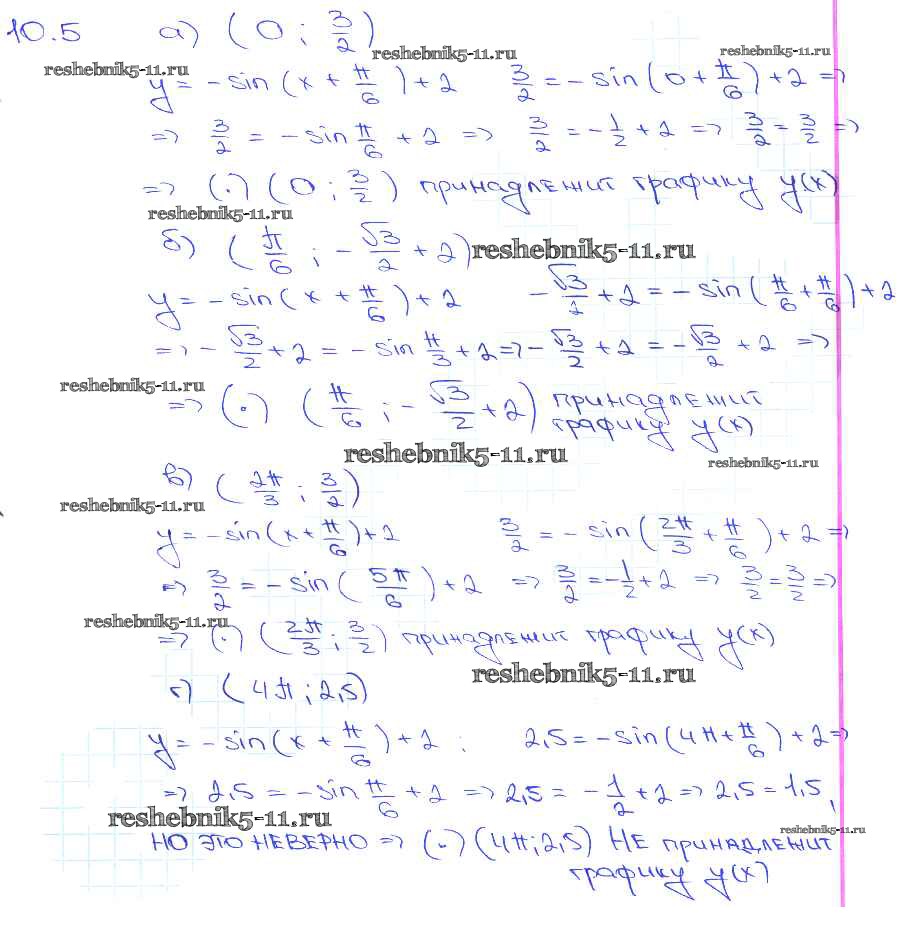 10.5 а) (0 ; 3/2)
reshebnik5-11.ru reshebnik5-11.ru reshebnik5-11.ru
y = -sin(x + π/6) + 2 3/2 = -sin(0 + π/6) + 2 =>
=> 3/2 = -sin π/6 + 2 => 3/2 = -1/2 + 2 => 3/2 = 3/2 =>
=> (·) (0 ; 3/2) принадлежит графику y(x)
reshebnik5-11.ru
б) (π/6 ; -√3/2 + 2) reshebnik5-11.ru
y = -sin(x + π/6) + 2 -√3/2 + 2 = -sin(π/6 + π/6) + 2
=> -√3/2 + 2 = -sin π/3 + 2 => -√3/2 + 2 = -√3/2 + 2 =>
reshebnik5-11.ru
=> (·) (π/6 ; -√3/2 + 2) принадлежит
графику y(x)
reshebnik5-11.ru reshebnik5-11.ru
в) (2π/3 ; 3/2)
reshebnik5-11.ru
y = -sin(x + π/6) + 2 3/2 = -sin(2π/3 + π/6) + 2 =>
=> 3/2 = -sin(5π/6) + 2 => 3/2 = -1/2 + 2 => 3/2 = 3/2 =>
reshebnik5-11.ru
=> (·) (2π/3 ; 3/2) принадлежит графику y(x)
reshebnik5-11.ru
г) (4π ; 2,5)
y = -sin(x + π/6) + 2 ; 2,5 = -sin(4π + π/6) + 2 =>
=> 2,5 = -sin π/6 + 2 => 2,5 = -1/2 + 2 => 2,5 = 1,5,
reshebnik5-11.ru reshebnik5-11.ru
но это неверно => (·) (4π; 2,5) не принадлежит
графику y(x)